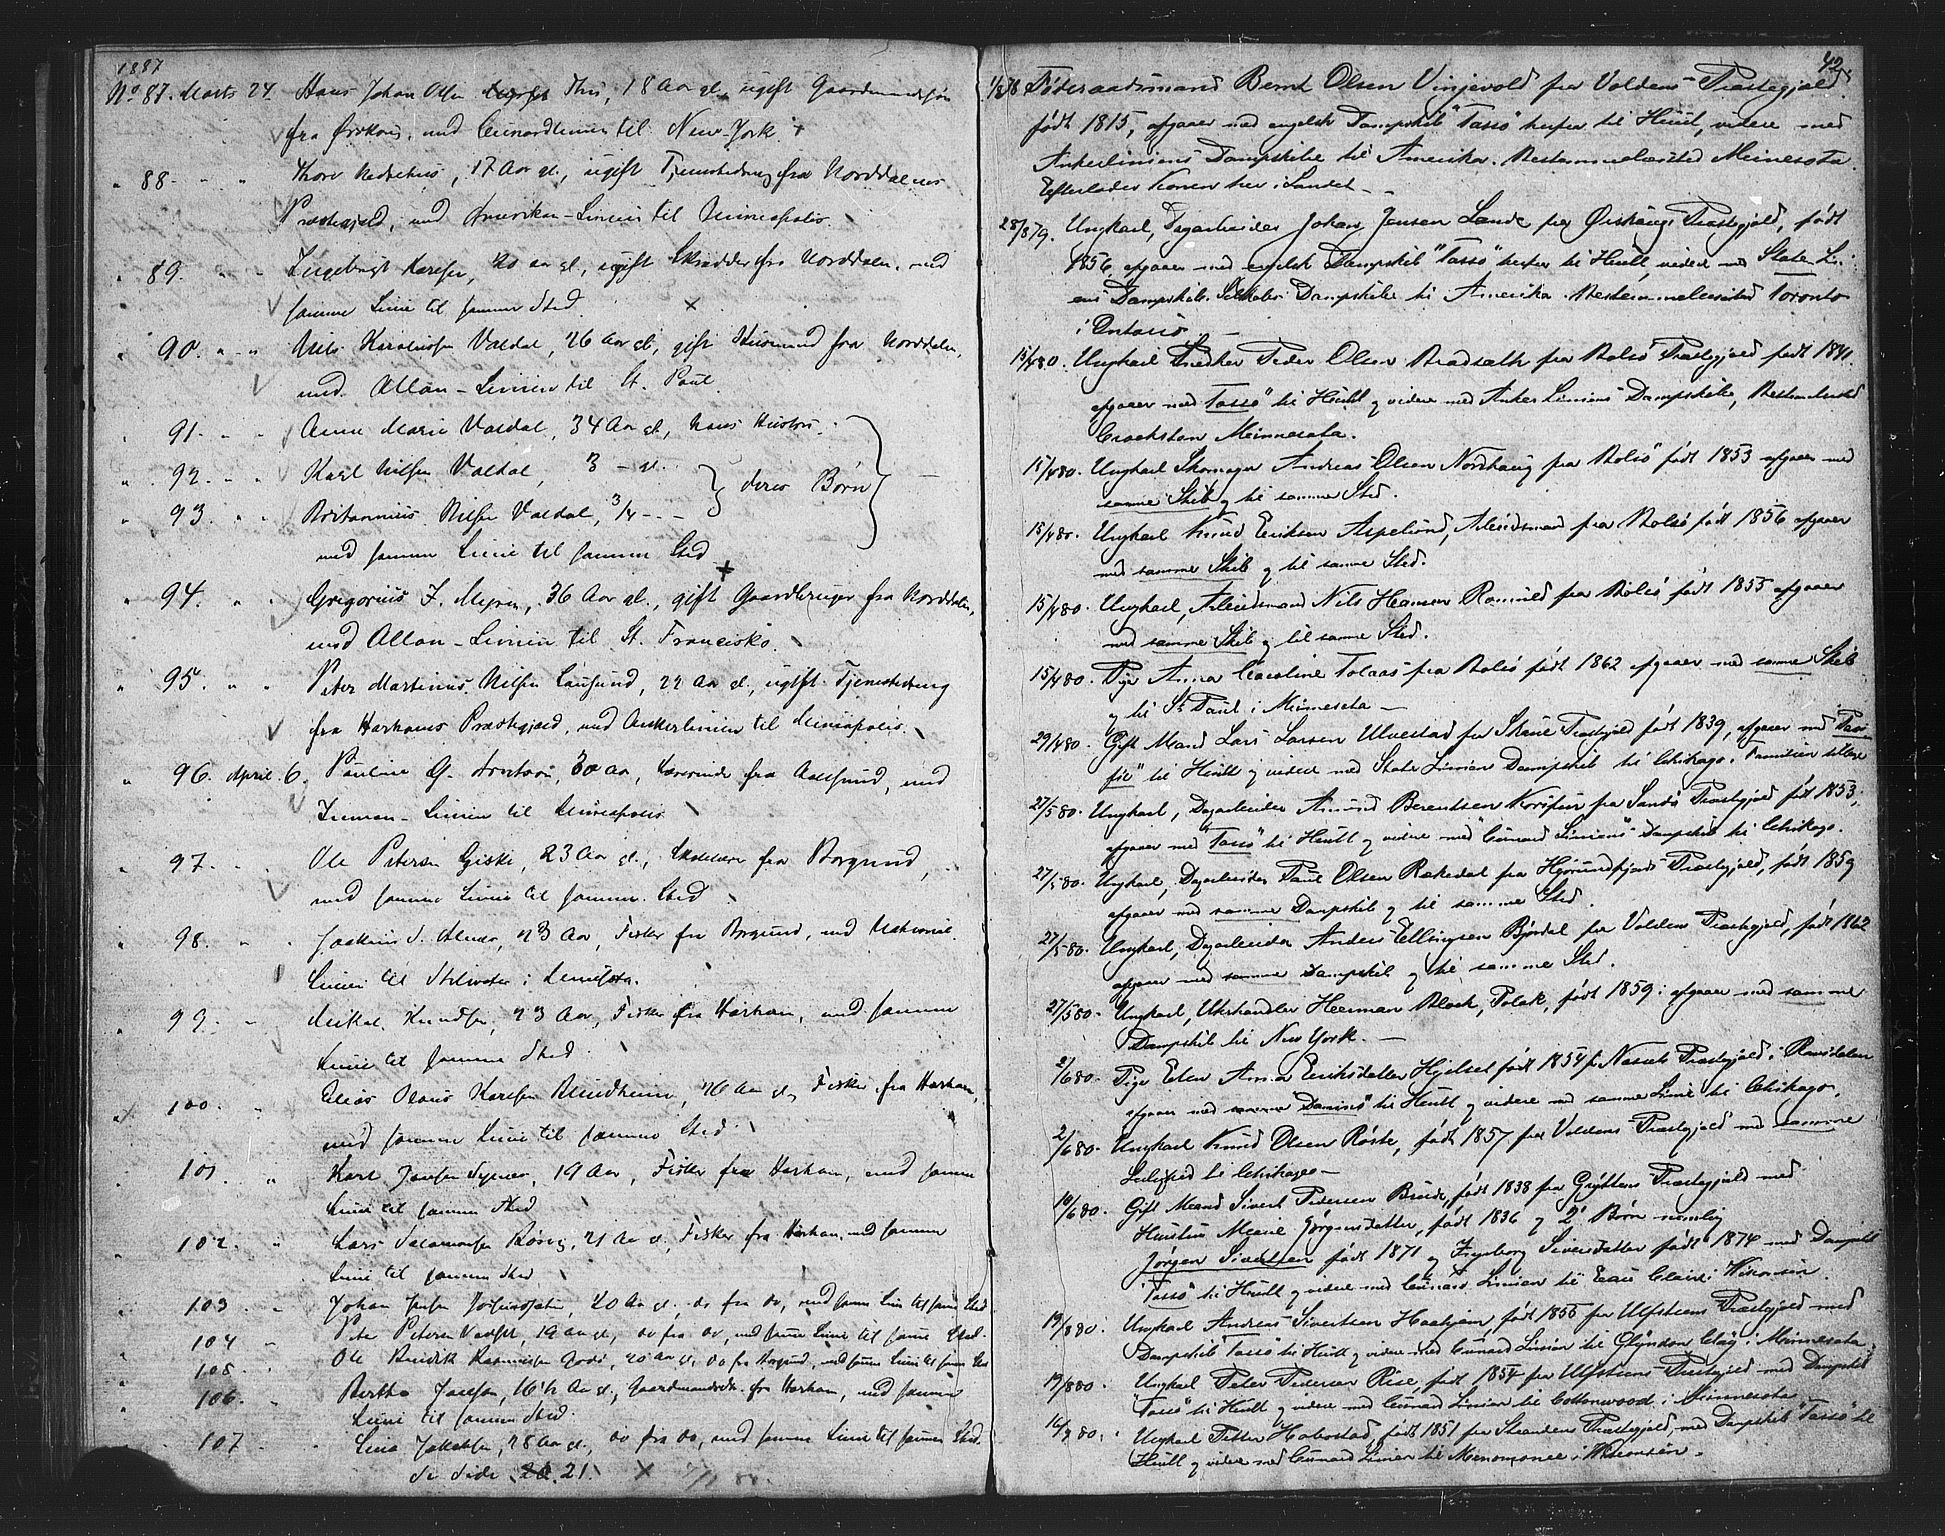 1887
No 87. Marts 24. Hans Johan Olsen Thu, 18 Aar gl., ugift Gaardmandssøn
fra Ørskoug, med Cunardlinien til New-York.
" 88. " " 17 Aar gl., ugift Tjenestedreng fra Norddalens
Præstegjeld, med Amerikan-Linien til Mineapolis.
" 89. " " Ingebrigt Karlsen, 20 Aar gl., ugift Skrædder fra Norddalen, med
samme Linie til samme Sted.
" 90. " " Nils Valdal, 26 Aar gl., gift Husmand fra Norddalen,
med Allan-Linien til St. Paul.
" 91. " " Anne Marie Valdal, 34 Aar gl., hans Hustru.
" 92. " " Karl Nilsen Valdal, 3 - gl.
deres Børn
" 93. " " Nilsen Valdal, 3/4 - -
med samme Linie til samme Sted
" 94. " " Gregorius J. Myren, 36 Aar gl., gift Gaardbruger fra Norddalen,
med Allan-Linien til St. Francisko.
" 95. " " Peter Martinus Nilsen Longsund, 22 Aar gl., ugift Tjenestedreng
fra Harhams Præstegjeld, med Ankerlinien til Mineapolis.
" 96. April 6. Pauline G. 30 Aar, fra Aalesund, med
Inman-Linien til Mineapolis
" 97. " " Ole Petersen Giske, 23 Aar gl., fra Borgund,
med samme Linie til samme Sted
" 98. " " 23 Aar, Fisker fra Borgund, med National
Linien til Stilwater i
" 99. " Mikal Knudsen, 23 Aar, Fisker fra Harham, med samme
Linie til samme Sted.
" 100. " Elias Olaus Karlsen Blindheim, 20 Aar gl., Fisker fra Harham,
med samme Linie til samme Sted
" 101. " Karl Jensen 19 Aar, Fisker fra Harham, med samme
Linie til samme Sted
" 102. " Lars Rørvig, 21 Aar gl., Fisker fra Harham, med samme
Linie til samme Sted
" 103 " Johan Jensen 20 Aar gl., do fra do, med samme Linie til samme Sted
" 104 " Peter Petersen 19 Aar gl., do fra do, med samme Linie til samme Sted.
" 105 " Ole Bendik Rasmussen Godø, 20 Aar gl. do fra Borgund, med samme Linie til samme Sted
" 106. " Berthe Josefsen, 16 1/2 Aar gl., Gaardmandsdtr. fra Harham, med samme
Linie til samme Sted.
" 107 " Lina Jakobsen, 28 Aar gl., do fra do, med samme Linie til samme Sted.
Se Side 21.
42
Føderaadsmand Bernt Olsen Vinjevold fra Voldens Præstegjeld
født 1815, afgaaer med engelsk Dampskib "Tasso" herfra til Hull, videre med
Ankerliniens Dampskibe til Amerika. Bestemmelsessted Meinesota
Efterlader Konen her i Landet. -
28/8 79. Ungkarl, Dagarbeider Johan Jensen Lande fra Ørskougs Præstegjeld, født
1856, afgaaer med engelsk Dampskib "Tasso" herfra til Hull, videre med State Li-
ens Dampskibs Selskabs Dampskibe til Amerika. Bestemmelsessted Toronto
i Ontario. -
15/4 80. Ungkarl Snedker Peder Olsen Bradsæth fra Bolsø Præstegjeld født 1841.
afgaaer med "Tasso" til Hull og videre med Anker Liniens Dampskibe, Bestemelsessted
Crookston Meinnesota.
15/4 80. Ungkarl Skomager Andreas Olsen Nordhaug fra Bolsø født 1853 afgaaer med
samme Skib og til samme Sted.
15/4 80. Ungkarl Knud Eriksen Aspelund, Arbeidsmand fra Bolsø født 1856 afgaaer
med samme Skib og til samme Sted.
15/4 80. Ungkarl, Arbeidsmand Nils Hansen Romuld fra Bolsø, født 1855 afgaaer
med samme Skib og til samme Sted.
15/4 80. Pige Anna Caroline Tolaas fra Bolsø født 1862 afgaaer med samme Skib
og til St Paul i Minnesota -
29/4 80. Gift Mand Lars Larsen Ulvestad fra Skaue Præstegjeld født 1839, afgaaer med
til Hull og videre med State Linien Dampskib til Chikago. Familien tilbage
27/5 80. Ungkarl, Dagarbeider Amund Berentsen Korsfur fra Sandø Præstegjeld født 1853,
afgaaer med "Tasso" til Hull og videre med "Cunard Liniens" Dampskib til Chikago.
27/5 80. Ungkarl, Dagarbeider Paul Olsen Rækedal fra Hjørundfjords Præstegjeld, født 1859
afgaaer med samme Dampskib og til samme Sted.
27/5 80. Ungkarl, Dagarbeider Anders Ellingsen Bjørdal fra Voldens Præstegjeld, født 1862
afgaaer med samme Dampskib og til samme Sted.
27/5 80. Ungkarl, Uhrhandler Heerman Block, Polak, født 1859: afgaaer med samme
Dampskib til New York. -
2/6 80. Pige Elen Anna Eriksdatter Hjelset født 1854 fr Næsset Præstegjeld i Romsdalen
afgaaer med "Domino" til Hull og videre med samme Linie til Chikago.
2/6 80. Ungkarl Knud Olsen Røste, født 1857 fra Voldens Præstegjeld med samme
Leilighed til Chikago -
19/6 80. Gift Mand Sivert Pedersen Brude, født 1838 fra Gryttens Præstegjeld med
Hustru Marie Jørgensdatter, født 1836 og 2 Børn nemlig
Jørgen Sivertsen født 1871 og Ingeborg Sivertsdatter født 1874 med Dampskib
"Tasso" til Hull og videre med Cunard Linien til Eau Claire i Wisconsin.
19/8 80. Ungkarl Andreas Sivertsen Haahjem, født 1855 fra Ulfsteens Præstegjeld med
Dampskib "Tasso" til Hull og videre med Cunard Linien til Glyndon Clay i Minnesota
19/8 80. Ungkarl Peter Pedersen Rise, født 1854 fra Ulfsteens Præstegjeld med Dampskib
"Tasso" til Hull og videre med Cunard Linien til Cottonwood i Minnesota.
16/9 80. Ungkarl Petter Holstad, født 1851 fra Strandens Præstegjeld, med Dampskib "Tasso" til
Hull og videre med Cunard Linien til Menomonee i Wisconsin. -